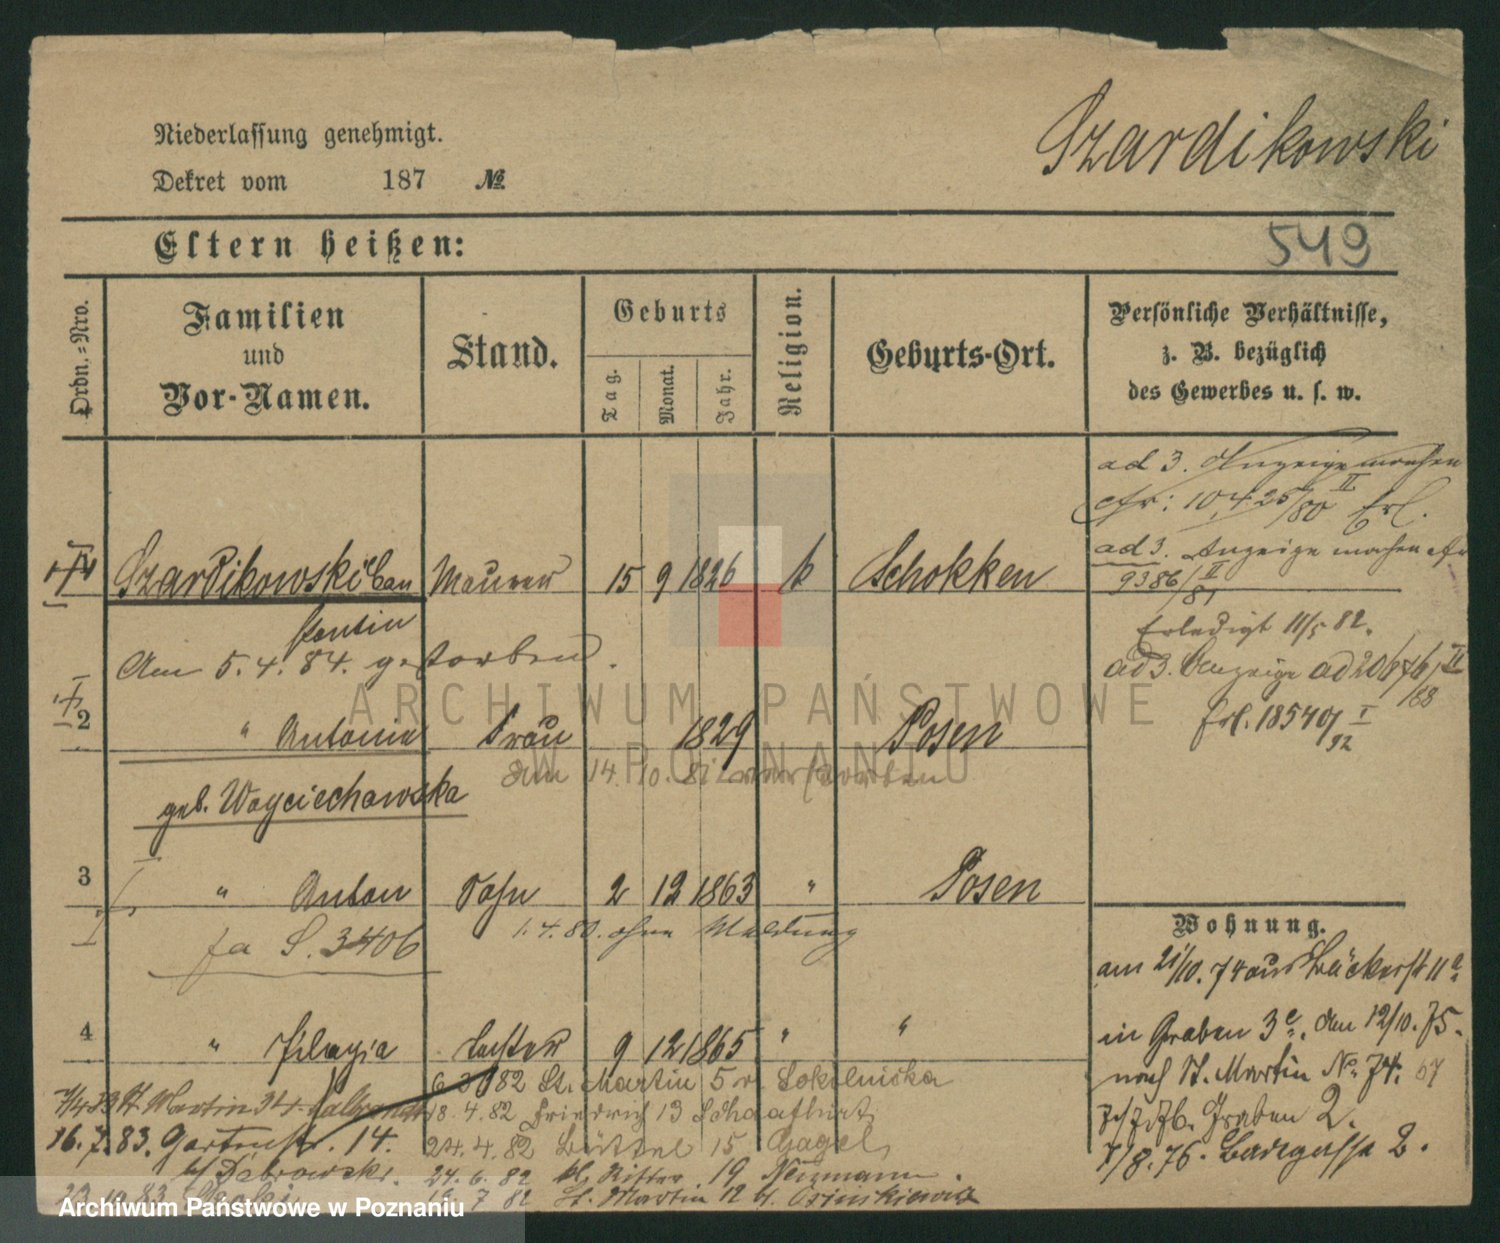 Niederlassung genehmigt.
Dekret vom 187 №
Szardikowski
Eltern heißen:
549
Ordn.=Nro.
Familien
und
Vor-Namen.
Stand.
Geburts
Tag.
Monat.
Jahr.
Religion.
Geburts-Ort.
Persönliche Verhältnisse,
z. B. bezüglich
des Gewerbes u. s. w.
ad 3. Anzeige machen
cfr: 10,425/80 II Erl.
ad 3. Anzeige machen cfr
9386/81 II
Erledigt 11/5 82.
ad 3. Anzeige ad
Erl.
Szardikowski Con Maurer 15 9 1826 k Schokken
stantin
Am 5. 4. 84. gestorben.
2 " Antonie Frau 1829 Posen
am 14. 10. 81 verstorben
geb. Woyciechowska
3 " Anton Sohn 2 12 1863 " Posen
1. 4. 80. ohne Meldung
fa S. 3406
4 " Pelagia Tochter 9 12 1865 " "
Wohnung.
am 21/10. 74 aus Bäckerst 11a
in Graben 3c. den 12/10. 75.
nach St. Martin No. 74. 67
Graben 2.
7/8. 76. Badegasse 2.
6 3 82 St. Martin 5 v. Sokolniska
18. 4. 82 Friedrich 13
24. 4. 82 Büttel 15 Gagel
24. 6. 82 kl. Ritter 19 Neumann.
7 82 St. Martin 12 b. Osinskiewicz
St Martin 34
16. 7. 83. Gartenstr. 14.
b/ Dabrowski.
ARCHIWUM PAŃSTWOWE
W POZNANIU
Archiwum Państwowe w Poznaniu